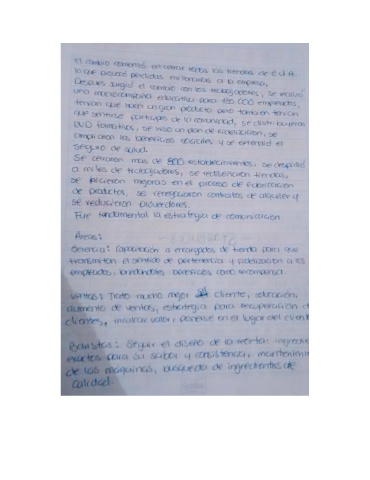 El cambio comenzó en cerrar todas las tiendas de E.U.A.
lo que provocó pérdidas millonarias a la empresa,
Después surgió el cambio con los trabajadores, se realizó
una macrocampaña educativa para 135 000 empleados,
tenían que hacer un gran producto pero también tenían
que sentirse participes de la comunidad, se distribuyeron
DVD formativos, se hizo un plan de fidelización, se
ampliaron los beneficios sociales y se extendió el
seguro de salud.
Se cerraron mas de 800 establecimientos, se despidió
a miles de trabajadores, se rediseñaron tiendas,
se hicieron mejoras en el proceso de fabricación
de productos, se renegociaron contratos de alquiler y
se redujeron proveedores.
Fue fundamental la estrategia de comunicación
Áreas:
Gerencia: Capacitación a encargados de tienda para que
transmitan el sentido de pertenencia y fidelización a los
empleados, brindandoles beneficios como recompensa.
Ventas: Trato mucho mejor cliente, educación,
aumento de ventas, estrategia para recuperación d
clientes, inculcar valor: ponerse en el lugar del client
Baristas: Seguir el diseño de la receta: ingredie
exactos para su sabor y consistencia, mantenimie
de las maquinas, busqueda de ingredientes de
calidad.